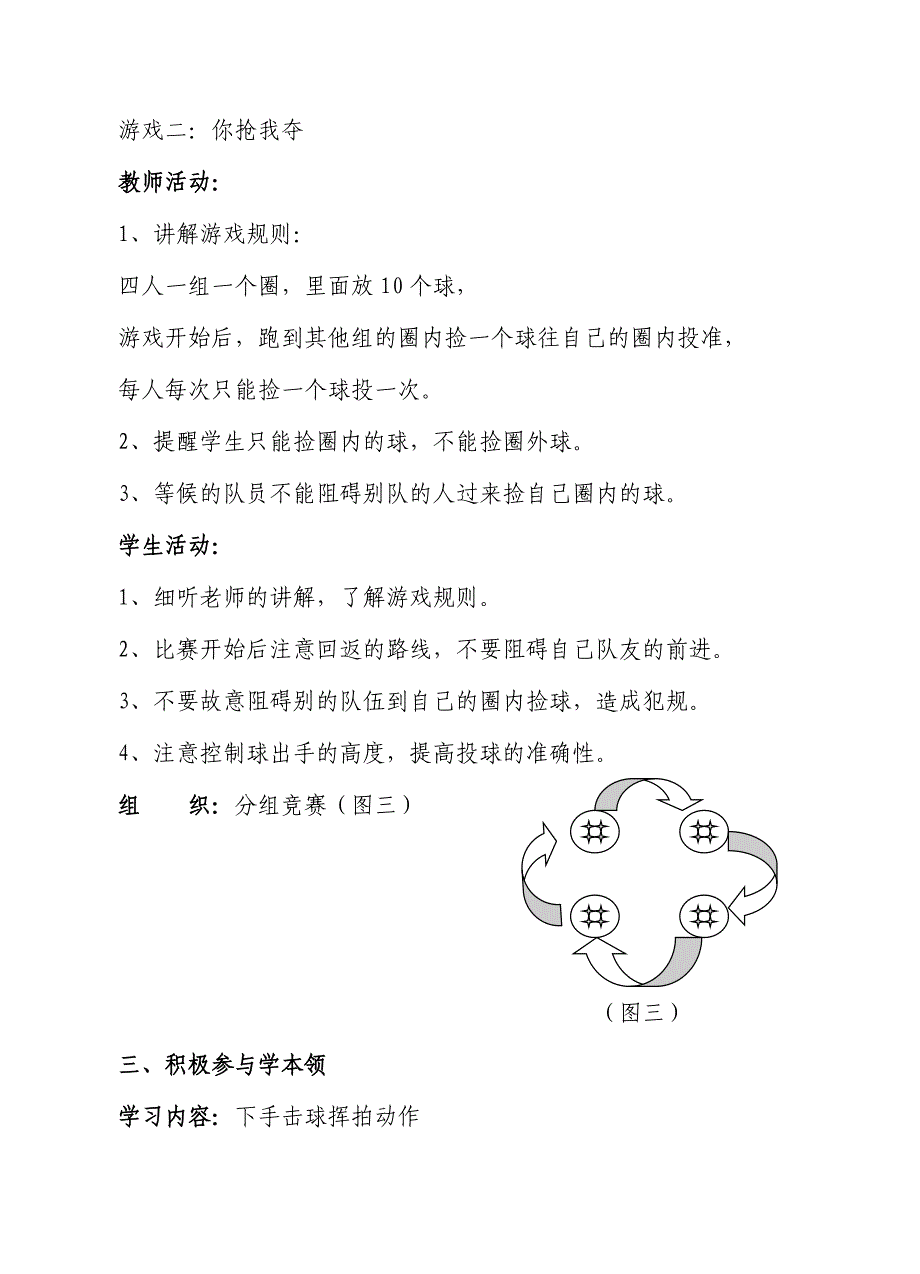 游戏二：你抢我夺
教师活动：
1、讲解游戏规则：
四人一组一个圈，里面放 10 个球，
游戏开始后，跑到其他组的圈内捡一个球往自己的圈内投准，
每人每次只能捡一个球投一次。
2、提醒学生只能捡圈内的球，不能捡圈外球。
3、等候的队员不能阻碍别队的人过来捡自己圈内的球。
学生活动：
1、细听老师的讲解，了解游戏规则。
2、比赛开始后注意回返的路线，不要阻碍自己队友的前进。
3、不要故意阻碍别的队伍到自己的圈内捡球，造成犯规。
4、注意控制球出手的高度，提高投球的准确性。
组　　织：分组竞赛（图三）
（图三）
三、积极参与学本领
学习内容：下手击球挥拍动作